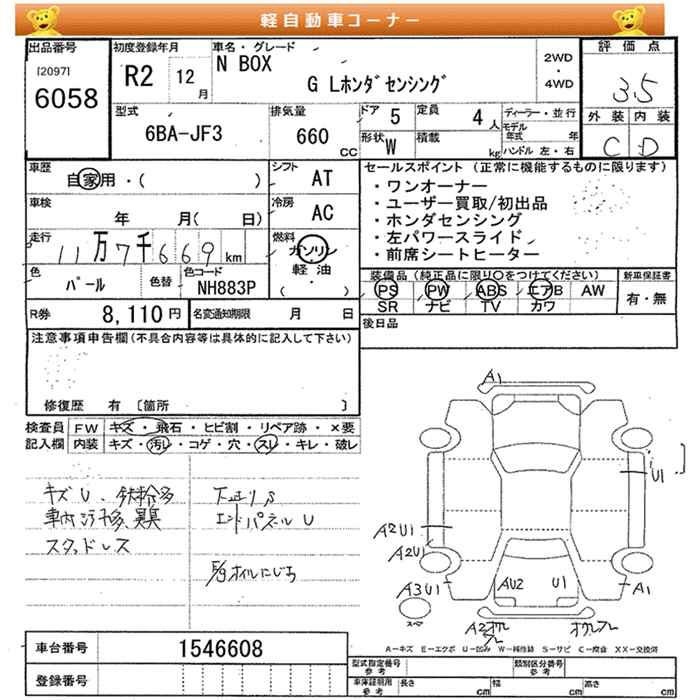 軽自動車コーナー
出品番号
[2097]
6058
初度登録年月
R2 12月
車名・グレード
N BOX
G Lホンダセンシング
2WD
・
4WD
評価点
3.5
外装 内装
C D
型式
6BA-JF3
排気量
660 CC
ドア 5
定員 4人
形状 W
積載 kg
ディーラー・並行
モデル年式 年
ハンドル 左・右
車歴
自家用・( )
シフト AT
車検
年 月( 日)
冷房 AC
走行
11万7千669km
燃料
ガソリン
軽油
( ・ )
色
パール
色替
色コード
NH883P
R券 8,110円
名変通知期限 月 日
セールスポイント (正常に機能するものに限ります)
・ワンオーナー
・ユーザー買取/初出品
・ホンダセンシング
・左パワースライド
・前席シートヒーター
装備品(純正品に限り○をつけてください)
PS PW ABS エアB AW
SR ナビ TV カワ
新車保証書
有・無
後日品
注意事項申告欄(不具合内容等は具体的に記入して下さい)
修復歴 有 [箇所 ]
検査員記入欄
FW キズ・飛石・ヒビ割・リペア跡・×要
内装 キズ・汚レ・コゲ・穴・スレ・キレ・破レ
キズU、鉄粉多
車内汚れ多、異臭
スタッドレス
下廻りS
エンドパネルU
E/gオイルにじみ
A1
U1
A2U1
A2U1
A3U1
A1
AU2 U1
スペア
A－キズ E－エクボ U－凹み W－補修跡 S－サビ C－腐食 XX－交換済
車台番号 1546608
登録番号
型式指定番号
参考
類別区分番号
参考
車庫証明用
参考
長さ cm
幅 cm
高さ cm